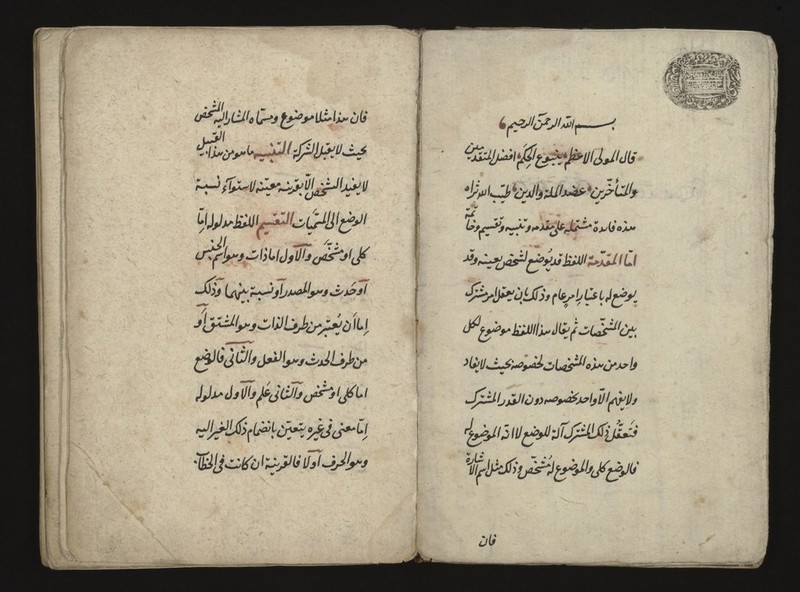 بسم الله الرحمن الرحيم
قال المولى الاعظم ينبوع الحكم افضل المتقدمين
والمتأخرين عضد الملة والدين طيب الله ثراه
هذه فائدة مشتملة على مقدمه وتنبيه وتقسيم وخاتمة
امّا المقدمة اللفظ قد يُوضع لشخص بعينه وقد
يوضع له باعتبار امرٍ عام وذلك بان يعقل امر مشترك
بين المشخصات ثم يقال هذا اللفظ موضوع لكل
واحد من هذه المشخصات بخصوصه بحيث لا يفاد
ولا يفهم الّا واحد بخصوصه دون القدر المشترك
فتعقّل ذلك المشترك آلة للوضع لا انه الموضوع له
فالوضع كلى والموضوع له مُشخّص وذلك مثل اسم الاشارة
فان
فان هذا مثلا موضوع ومسمّاه المشار اليه المشخص
بحيث لا يقبل الشركة التنبيه ما هو من هذا القبيل
لا يفيد الشخص الّا بقرينه معينة لاستوآء نسبة
الوضع الى المسمّيات التقسيم اللفظ مدلوله امّا
كلى او مشخّص والاول اما ذات وهو اسم الجنس
او حَدث وهو المصدر او نسبة بينهما وذلك
اما أن يُعتبر من طرف الذات وهو المشتق أو
من طرف الحدث وهو الفعل والثانى فالوضع
اما كلى او مشخص والثانى عَلم والاول مدلوله
اِمّا معنى فى غيره يتعيّن بانضمام ذلك الغير اليه
وهو الحرف أو لا فالقرينة ان كانت فى الخطاب